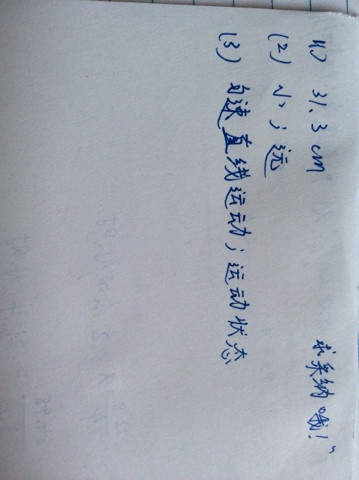 (1) 31.3 cm
(2) 小；远
(3) 匀速直线运动；运动状态
求采纳哦！"